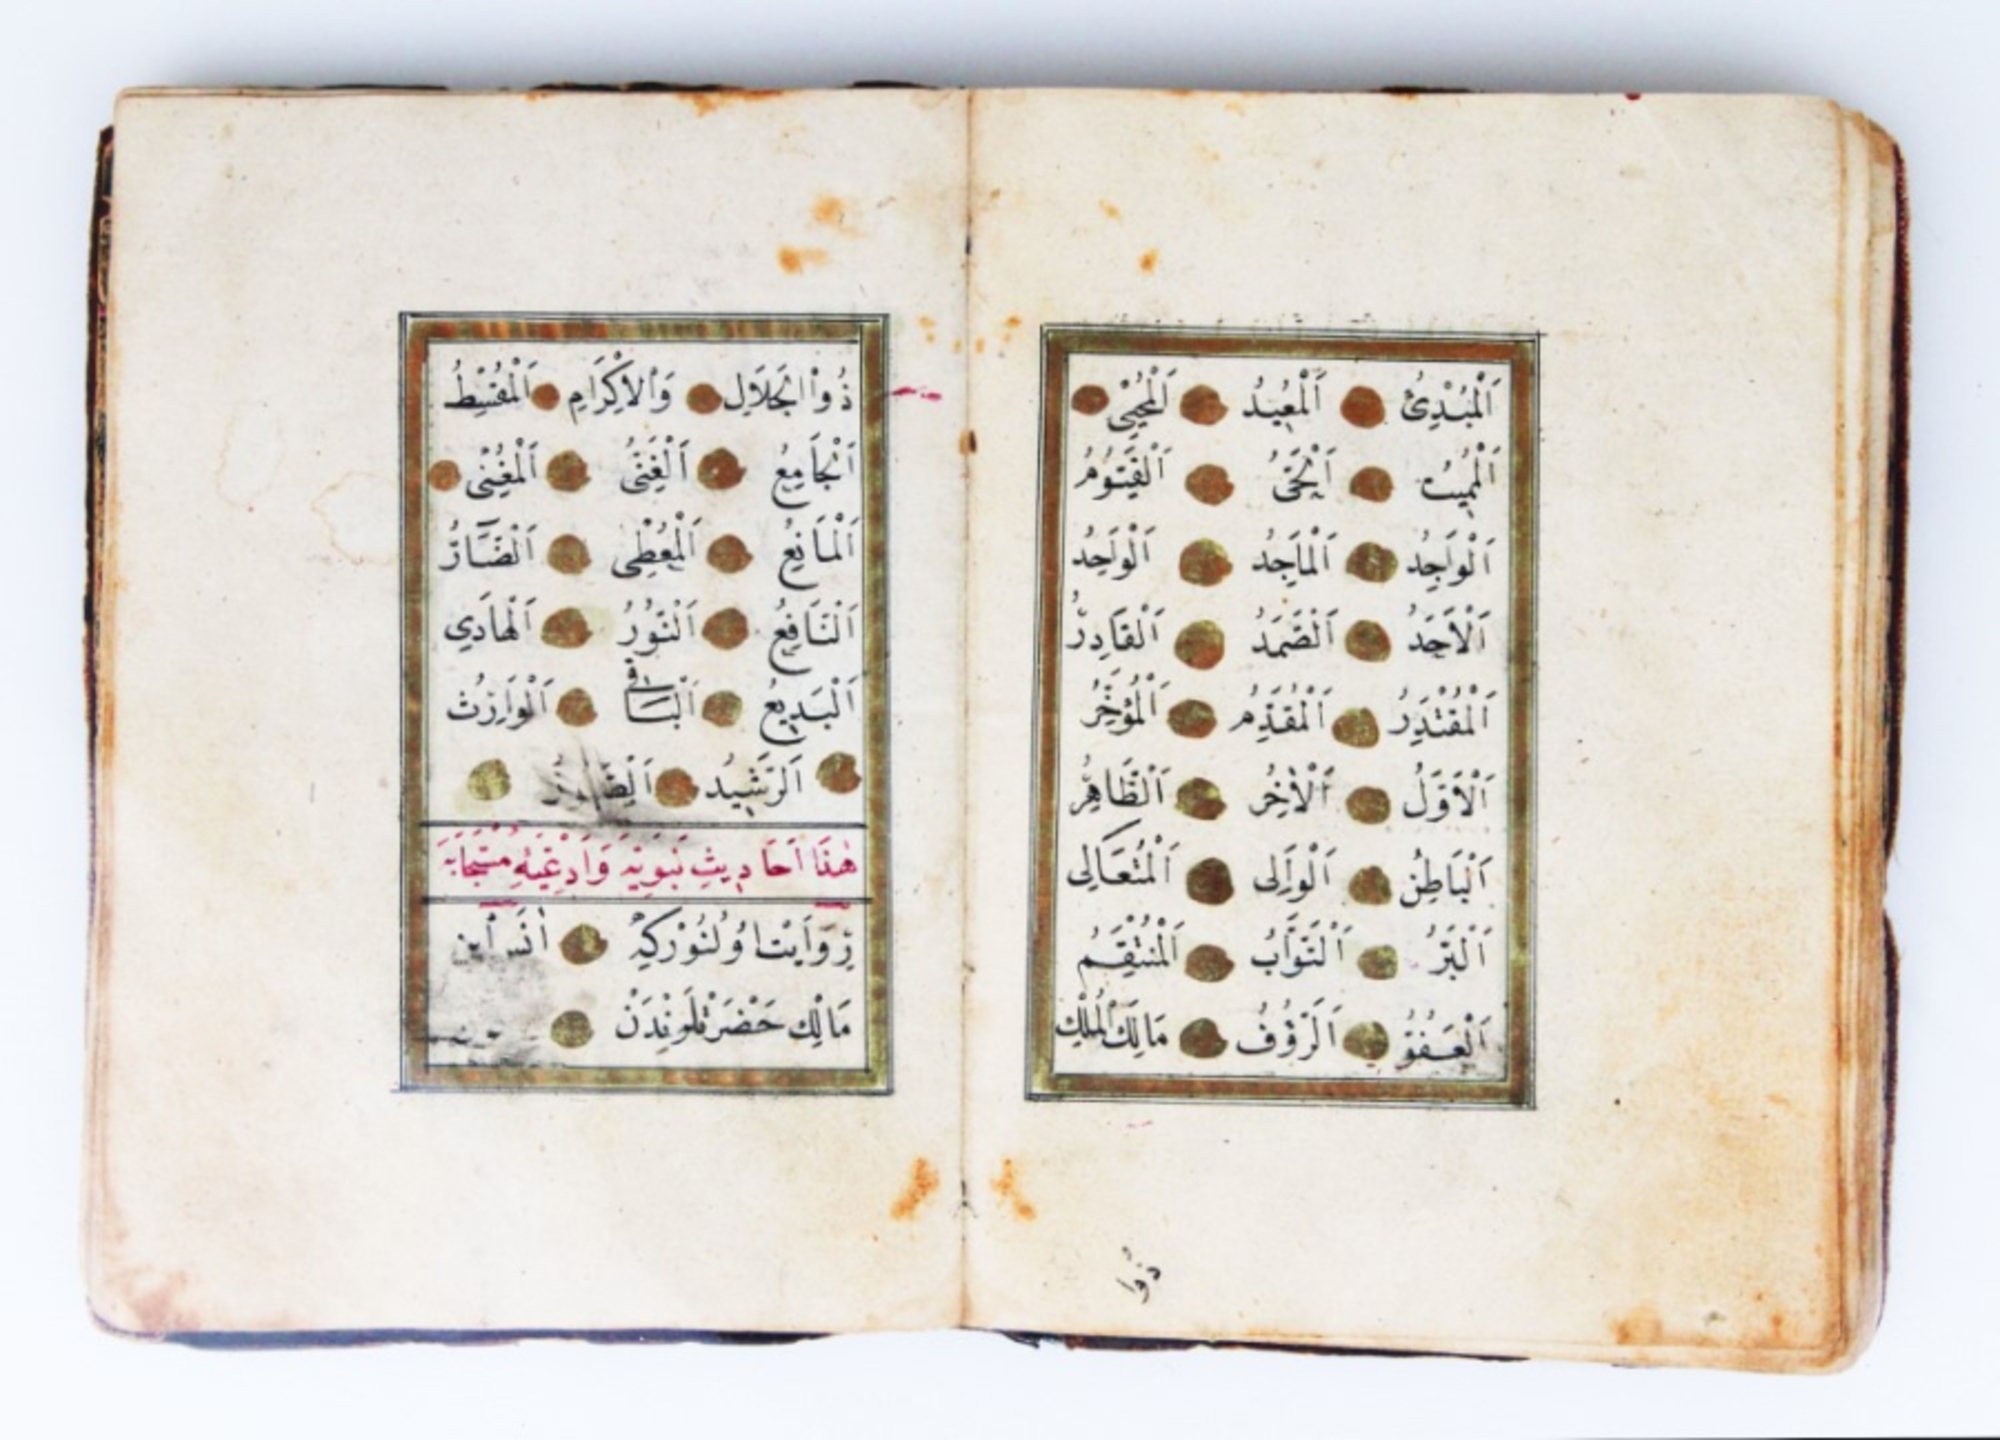 اَلْمُبْدِئُ اَلْمُعِيدُ اَلْمُحْيِى
اَلْمُمِيتُ اَلْحَىُّ اَلْقَيُّومُ
اَلْوَاجِدُ اَلْمَاجِدُ اَلْوَاحِدُ
اَلْاَحَدُ اَلصَّمَدُ اَلْقَادِرُ
اَلْمُقْتَدِرُ اَلْمُقَدِّمُ اَلْمُؤَخِّرُ
اَلْاَوَّلُ اَلْاٰخِرُ اَلظَّاهِرُ
اَلْبَاطِنُ اَلْوَالِى اَلْمُتَعَالِى
اَلْبَرُّ اَلتَّوَّابُ اَلْمُنْتَقِمُ
اَلْعَفُوُّ اَلرَّؤُفُ مَالِكُ الْمُلْكِ
ذُوا
ذُواْلجَلَالِ وَالْاِكْرَامِ اَلْمُقْسِطُ
اَلْجَامِعُ اَلْغَنِىُّ اَلْمُغْنِى
اَلْمَانِعُ اَلْمُعْطِى اَلضَّآرُّ
اَلنَّافِعُ اَلنُّورُ اَلْهَادِي
اَلْبَدِيعُ اَلْبَاقِى اَلْوَارِثُ
اَلرَّشِيدُ
هٰذَا اَحَادِيثِ نَبَوِيَّه وَاَدْعِيَهٔ مُسْتَجَابَه
رِوَايَتْ اوُلُنُورْكِه اَنَسْ اِبْنِ
مَالِك حَضْرَتْلَرِنْدَنْ